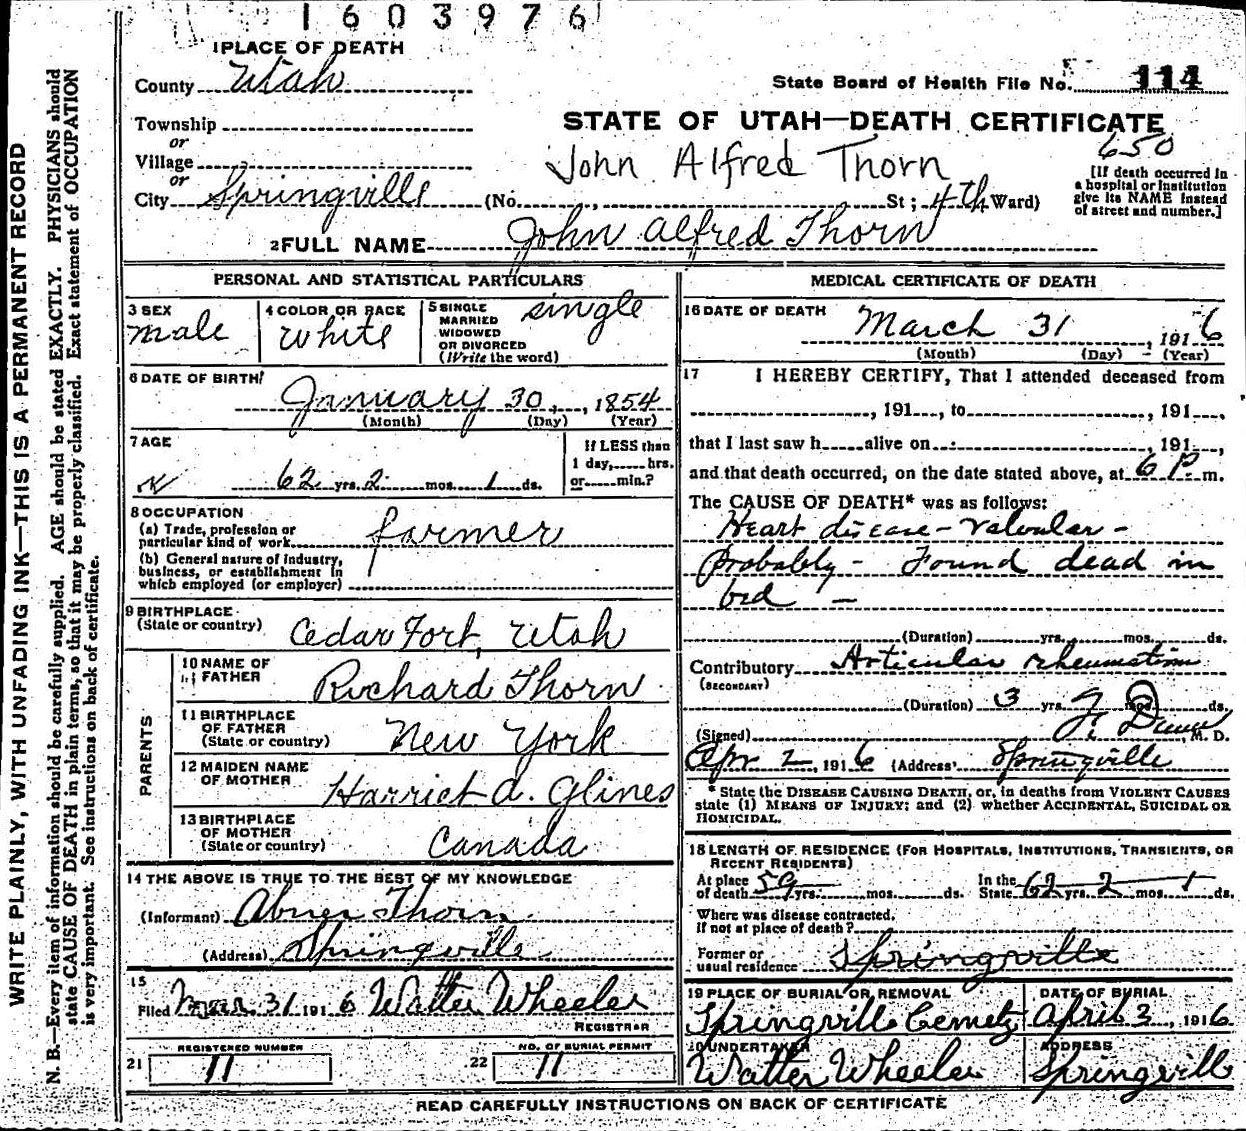 1603976
1 PLACE OF DEATH
County Utah
State Board of Health File No. 114
Township
or
Village
or
City Springville (No. , St; 4th Ward)
STATE OF UTAH—DEATH CERTIFICATE
650
John Alfred Thorn
[If death occurred in
a hospital or institution
give its NAME instead
of street and number.]
2 FULL NAME John Alfred Thorn
PERSONAL AND STATISTICAL PARTICULARS
3 SEX
male
4 COLOR OR RACE
White
5 SINGLE
MARRIED
WIDOWED
OR DIVORCED
(Write the word)
single
6 DATE OF BIRTH
January 30, 1854
(Month) (Day) (Year)
7 AGE
62 yrs. 2 mos. 1 ds.
If LESS than
1 day, hrs.
or min.?
8 OCCUPATION
(a) Trade, profession or
particular kind of work farmer
(b) General nature of industry,
business, or establishment in
which employed (or employer)
9 BIRTHPLACE
(State or country) Cedar Fort, Utah
PARENTS
10 NAME OF
FATHER Richard Thorn
11 BIRTHPLACE
OF FATHER
(State or country) New York
12 MAIDEN NAME
OF MOTHER Harriet A. Glines
13 BIRTHPLACE
OF MOTHER
(State or country) Canada
14 THE ABOVE IS TRUE TO THE BEST OF MY KNOWLEDGE
(Informant) Abner Thorn
(Address) Springville
15
Filed Mar. 31 1916 Walter Wheeler
REGISTRAR
21 REGISTERED NUMBER
11
22 NO. OF BURIAL PERMIT
11
MEDICAL CERTIFICATE OF DEATH
16 DATE OF DEATH March 31, 1916
(Month) (Day) (Year)
17 I HEREBY CERTIFY, That I attended deceased from
, 191 , to , 191 ,
that I last saw h alive on , 191 ,
and that death occurred, on the date stated above, at 6 P. m.
The CAUSE OF DEATH* was as follows:
Heart disease - valvular -
Probably - Found dead in
bed -
(Duration) yrs. mos. ds.
Contributory Articular rheumatism
(SECONDARY)
(Duration) 3 yrs. mos. ds.
(Signed) M. D.
Apr 2, 1916 (Address) Springville
* State the DISEASE CAUSING DEATH, or, in deaths from VIOLENT CAUSES
state (1) MEANS OF INJURY; and (2) whether ACCIDENTAL, SUICIDAL OR
HOMICIDAL.
18 LENGTH OF RESIDENCE (FOR HOSPITALS, INSTITUTIONS, TRANSIENTS, OR
RECENT RESIDENTS)
At place
of death 59 yrs. mos. ds.
In the
State 62 yrs. 2 mos. 1 ds.
Where was disease contracted,
if not at place of death?
Former or
usual residence Springville
19 PLACE OF BURIAL OR REMOVAL
Springville Cemetery
DATE OF BURIAL
April 3, 1916
20 UNDERTAKER
Walter Wheeler
ADDRESS
Springville
READ CAREFULLY INSTRUCTIONS ON BACK OF CERTIFICATE
WRITE PLAINLY, WITH UNFADING INK—THIS IS A PERMANENT RECORD
N. B.—Every item of information should be carefully supplied. AGE should be stated EXACTLY. PHYSICIANS should
state CAUSE OF DEATH in plain terms, so that it may be properly classified. Exact statement of OCCUPATION
is very important. See instructions on back of certificate.